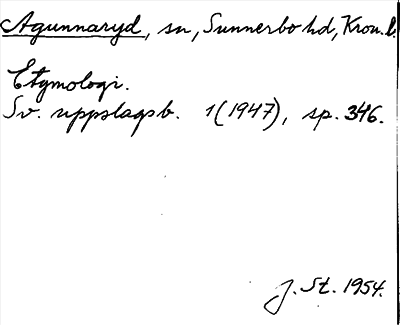 Agunnaryd, sn, Sunnerbo hd, Kron. l.
Etymologi.
Sv. uppslagsb. 1(1947), sp. 346.
J. St. 1954.